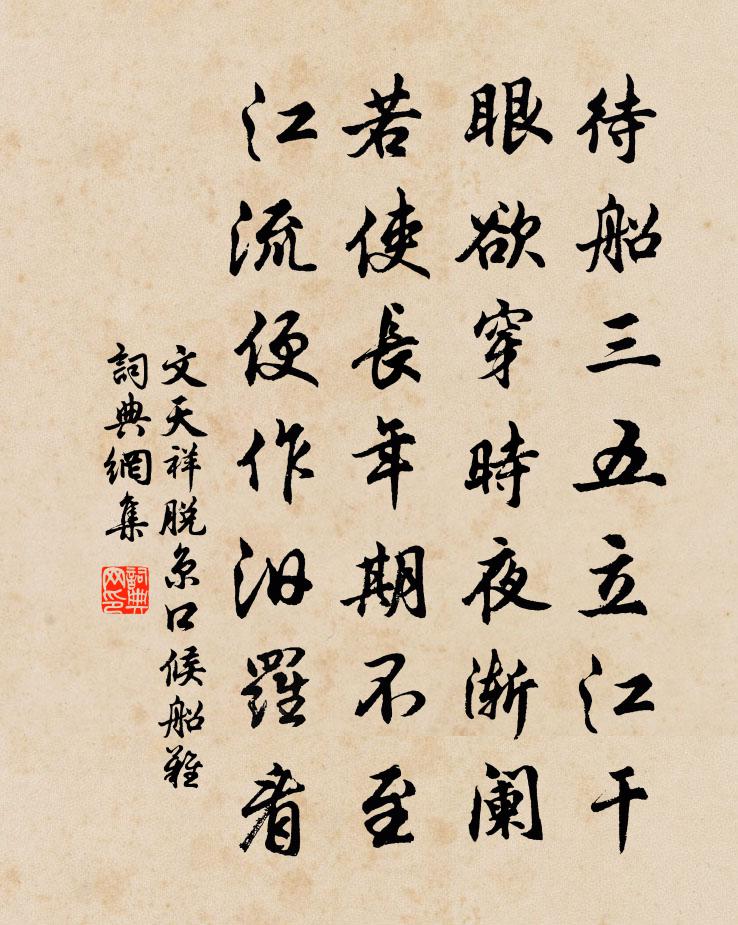 待船三五立江干
眼欲穿時夜漸阑
若使長年期不至
江流便作汨羅看
文天祥脱京口候船難
詞典網集
詞典網印